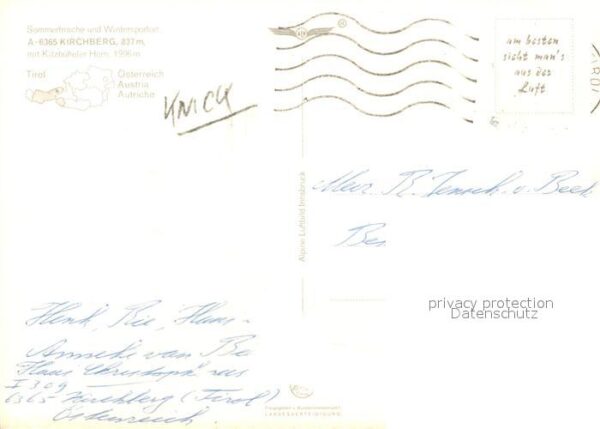 Sommerfrische und Wintersportort
A-6365 KIRCHBERG, 837 m,
mit Kitzbüheler Horn, 1996 m
Tirol
Österreich
Austria
Autriche
KNICK
am besten
sieht man's
aus der
Luft
Alpine Luftbild Innsbruck
R.
v. Beek
privacy protection
Datenschutz
Henk, Rie, Hans-
Anneke van Be
Haus
6365 Kirchberg (Tirol)
Österreich.
LANDESVERTEIDIGUNG